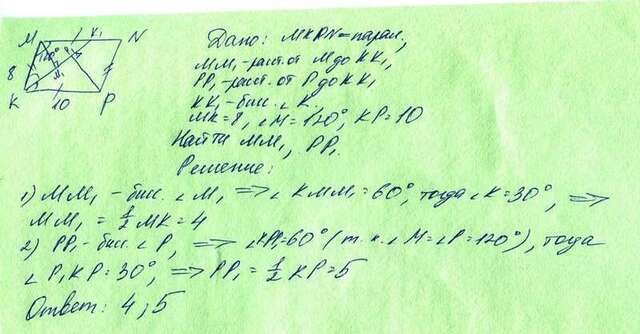 M K₁ N
120° P₁
8 M₁
K 10 P
Дано: MKPN = парал.,
MM₁ - раст. от M до KK₁,
PP₁ - раст. от P до KK₁
KK₁ - бис. ∠K.
MK = 8, ∠M = 120°, KP = 10
Найти MM₁, PP₁.
Решение:
1) MM₁ - бис. ∠M, => ∠KMM₁ = 60°, тогда ∠K = 30°, =>
MM₁ = ½ MK = 4
2) PP₁ - бис. ∠P, => ∠KPP₁ = 60° (т. к. ∠M = ∠P = 120°), тогда
∠P₁KP = 30°, => PP₁ = ½ KP = 5
Ответ: 4; 5